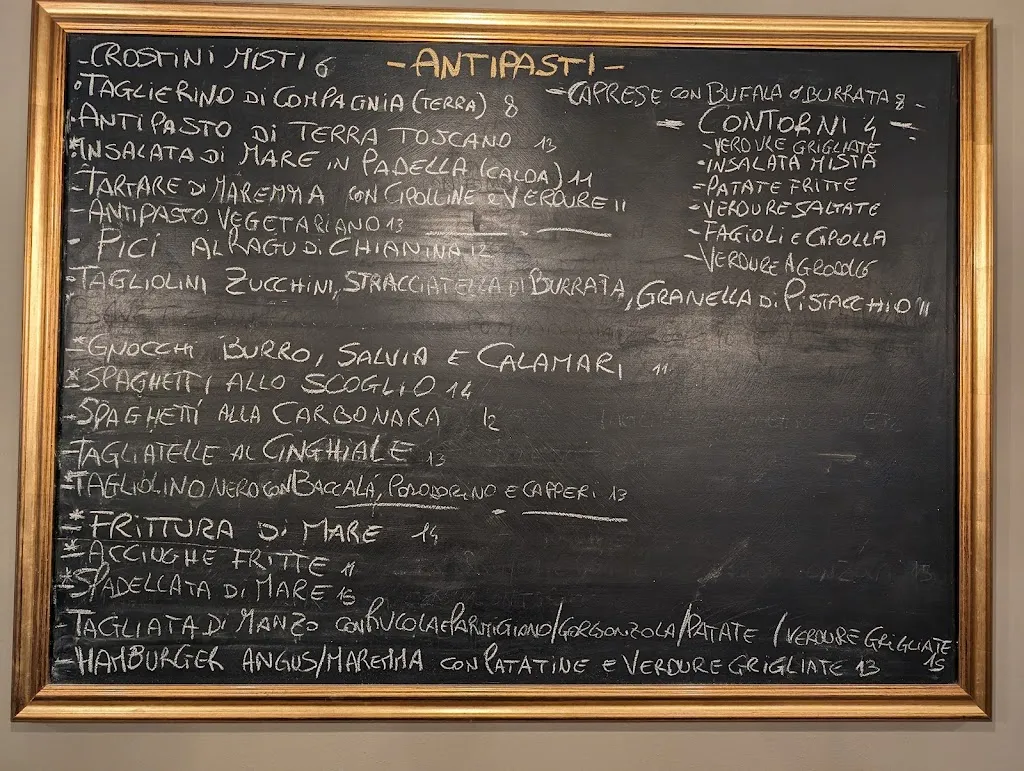 - ANTIPASTI -
- CROSTINI MISTI 6
- TAGLIERINO DI COMPAGNIA (TERRA) 8
- ANTIPASTO DI TERRA TOSCANO 13
*INSALATA DI MARE IN PADELLA (CALDA) 11
- TARTARE DI MAREMMA CON CIPOLLINE E VERDURE 11
- ANTIPASTO VEGETARIANO 13
- CAPRESE CON BUFALA O BURRATA 8 -
- CONTORNI 4 -
- VERDURE GRIGLIATE
- INSALATA MISTA
- PATATE FRITTE
- VERDURE SALTATE
- FAGIOLI E CIPOLLA
- VERDURE AGRODOLG
- PICI AL RAGU DI CHIANINA 12
- TAGLIOLINI ZUCCHINI, STRACCIATELLA DI BURRATA, GRANELLA DI PISTACCHIO 11
*GNOCCHI BURRO, SALVIA E CALAMARI 11
*SPAGHETTI ALLO SCOGLIO 14
- SPAGHETTI ALLA CARBONARA 12
- TAGLIATELLE AL CINGHIALE 13
- TAGLIOLINO NERO CON BACCALA, POMODORINO E CAPPERI 13
*FRITTURA DI MARE 14
*ACCIUGHE FRITTE 11
*SPADELLATA DI MARE 15
- TAGLIATA DI MANZO CON RUCOLA E PARMIGIANO/GORGONZOLA/PATATE / VERDURE GRIGLIATE 15
- HAMBURGER ANGUS/MAREMMA CON PATATINE E VERDURE GRIGLIATE 13